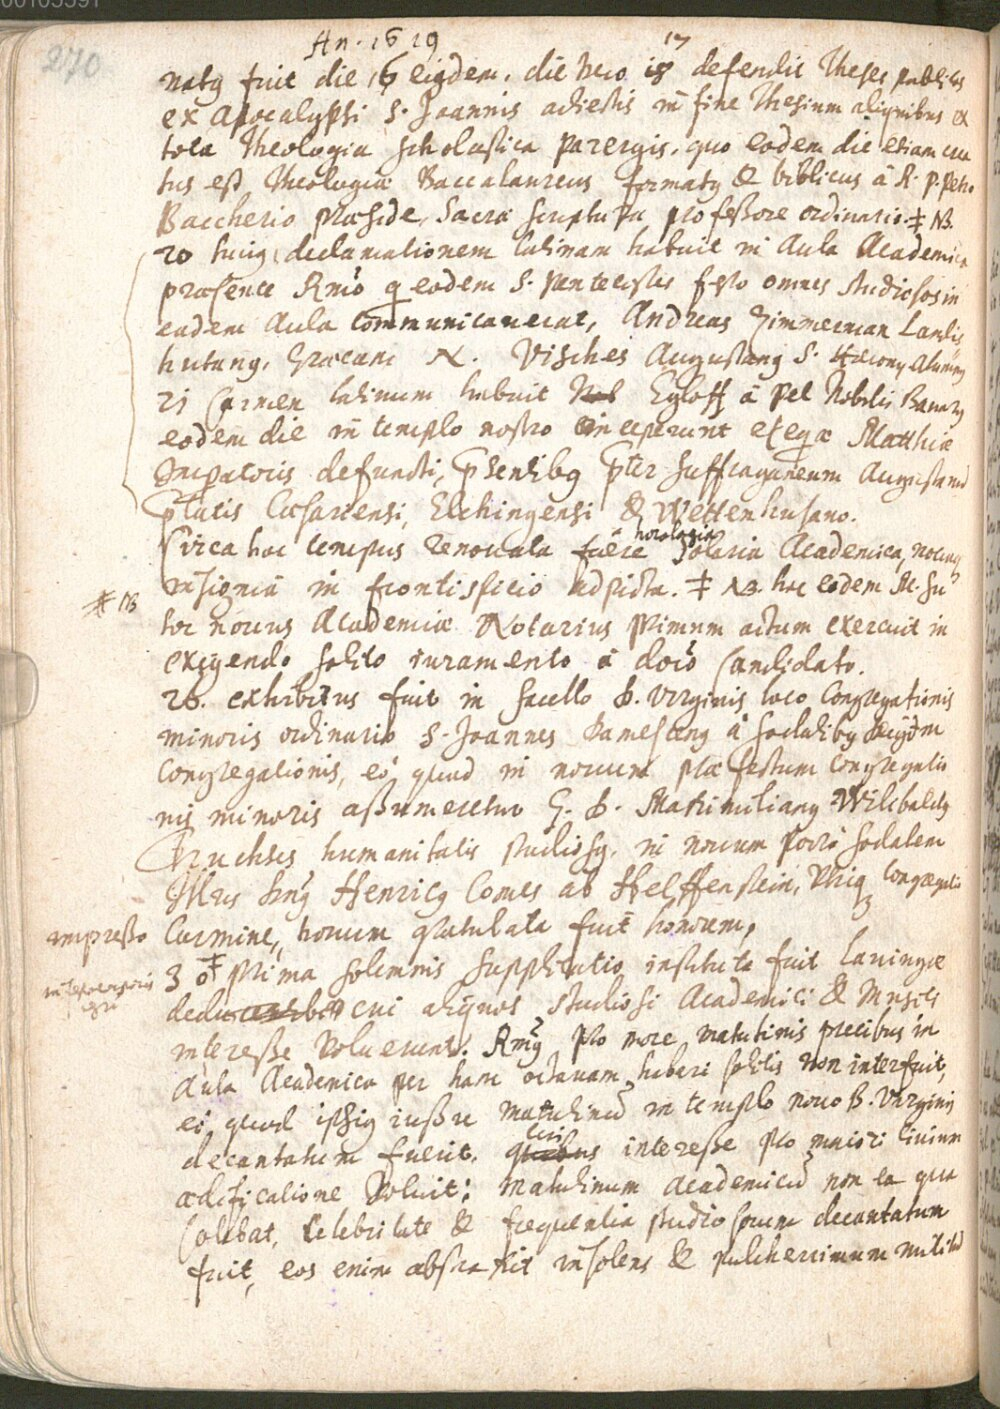 00103391
270
An. 1619
17
natq fuit die 16 eiqdem. die vero 18 defendit Theses publicas
ex Apocalypsi S. Joannis adiectis in fine Thesium aliquibus ex
tota Theologia scholastica parergis. quo eodem die etiam crea
tus est Theologiae Baccalaureus formatq & biblicus à R. P. Petro
Baccherio praeside, Sacrae scripturae professore ordinario. ‡ NB.
20 huiq declamationem latinam habuit in Aula Academica
praesente Rmo q eodem S. Pentecostes festo omnes studiosos in
eadem Aula communicaverat, Andreas Zimmerman Landis
hutanq, Graecam N. Visches Augustanq S. Hieronymi Alumnq
21 Carmen latinum habuit Nob Egloff à Zel Nobilis Bavarq
eodem die in templo nostro inceperunt exequiae Matthiae
Imperatoris defuncti, psentibq pter suffraganeum Augustanū
platis Caesariensi, Elchingensi & Wettenhusano.
Circa hoc tempus renovata fuêre horologia Solaria Academica, novaq
insignia in frontispicio adpicta. ‡ NB. hoc eodem
‡ NB
tor novus Academiae Notarius primum actum exercuit in
exigendo solito iuramento à dicto Candidato.
26. exhibitus fuit in sacello B. Virginis loco Congregationis
minoris ordinario S. Joannes Damascenq à sodalibq eiqdem
Congregationis, eò quod in novum praefectum Congregatio
nis minoris assumeretur G. D. Maximilianq Wilibaldq
Truchses humanitatis studiosq. in novum porrò sodalem
Illus Dnq Henricq Comes ab Helffenstein, utriq Congregatio
impresso Carmine, bonum gratulata fuit honorem,
30 ‡ Prima solemnis supplicatio instituta fuit Laningae
cui aliquos studiosi Academici & Musici
interesse voluerunt. Rmq pro more matutinis precibus in
Aula Academica per hanc octavam haberi solitis non interfuit,
eò quod ipsiq iussu matutinū in templo novo B. Virginis
decantatum fuerit. cui quibus interesse pro maiori civium
aedificatione voluit: Matutinum Academicū non ea qua
solebat, celebritate & frequentia studiosorum decantatum
fuit, eos enim abstraxit insolens & pulcherrimum militū